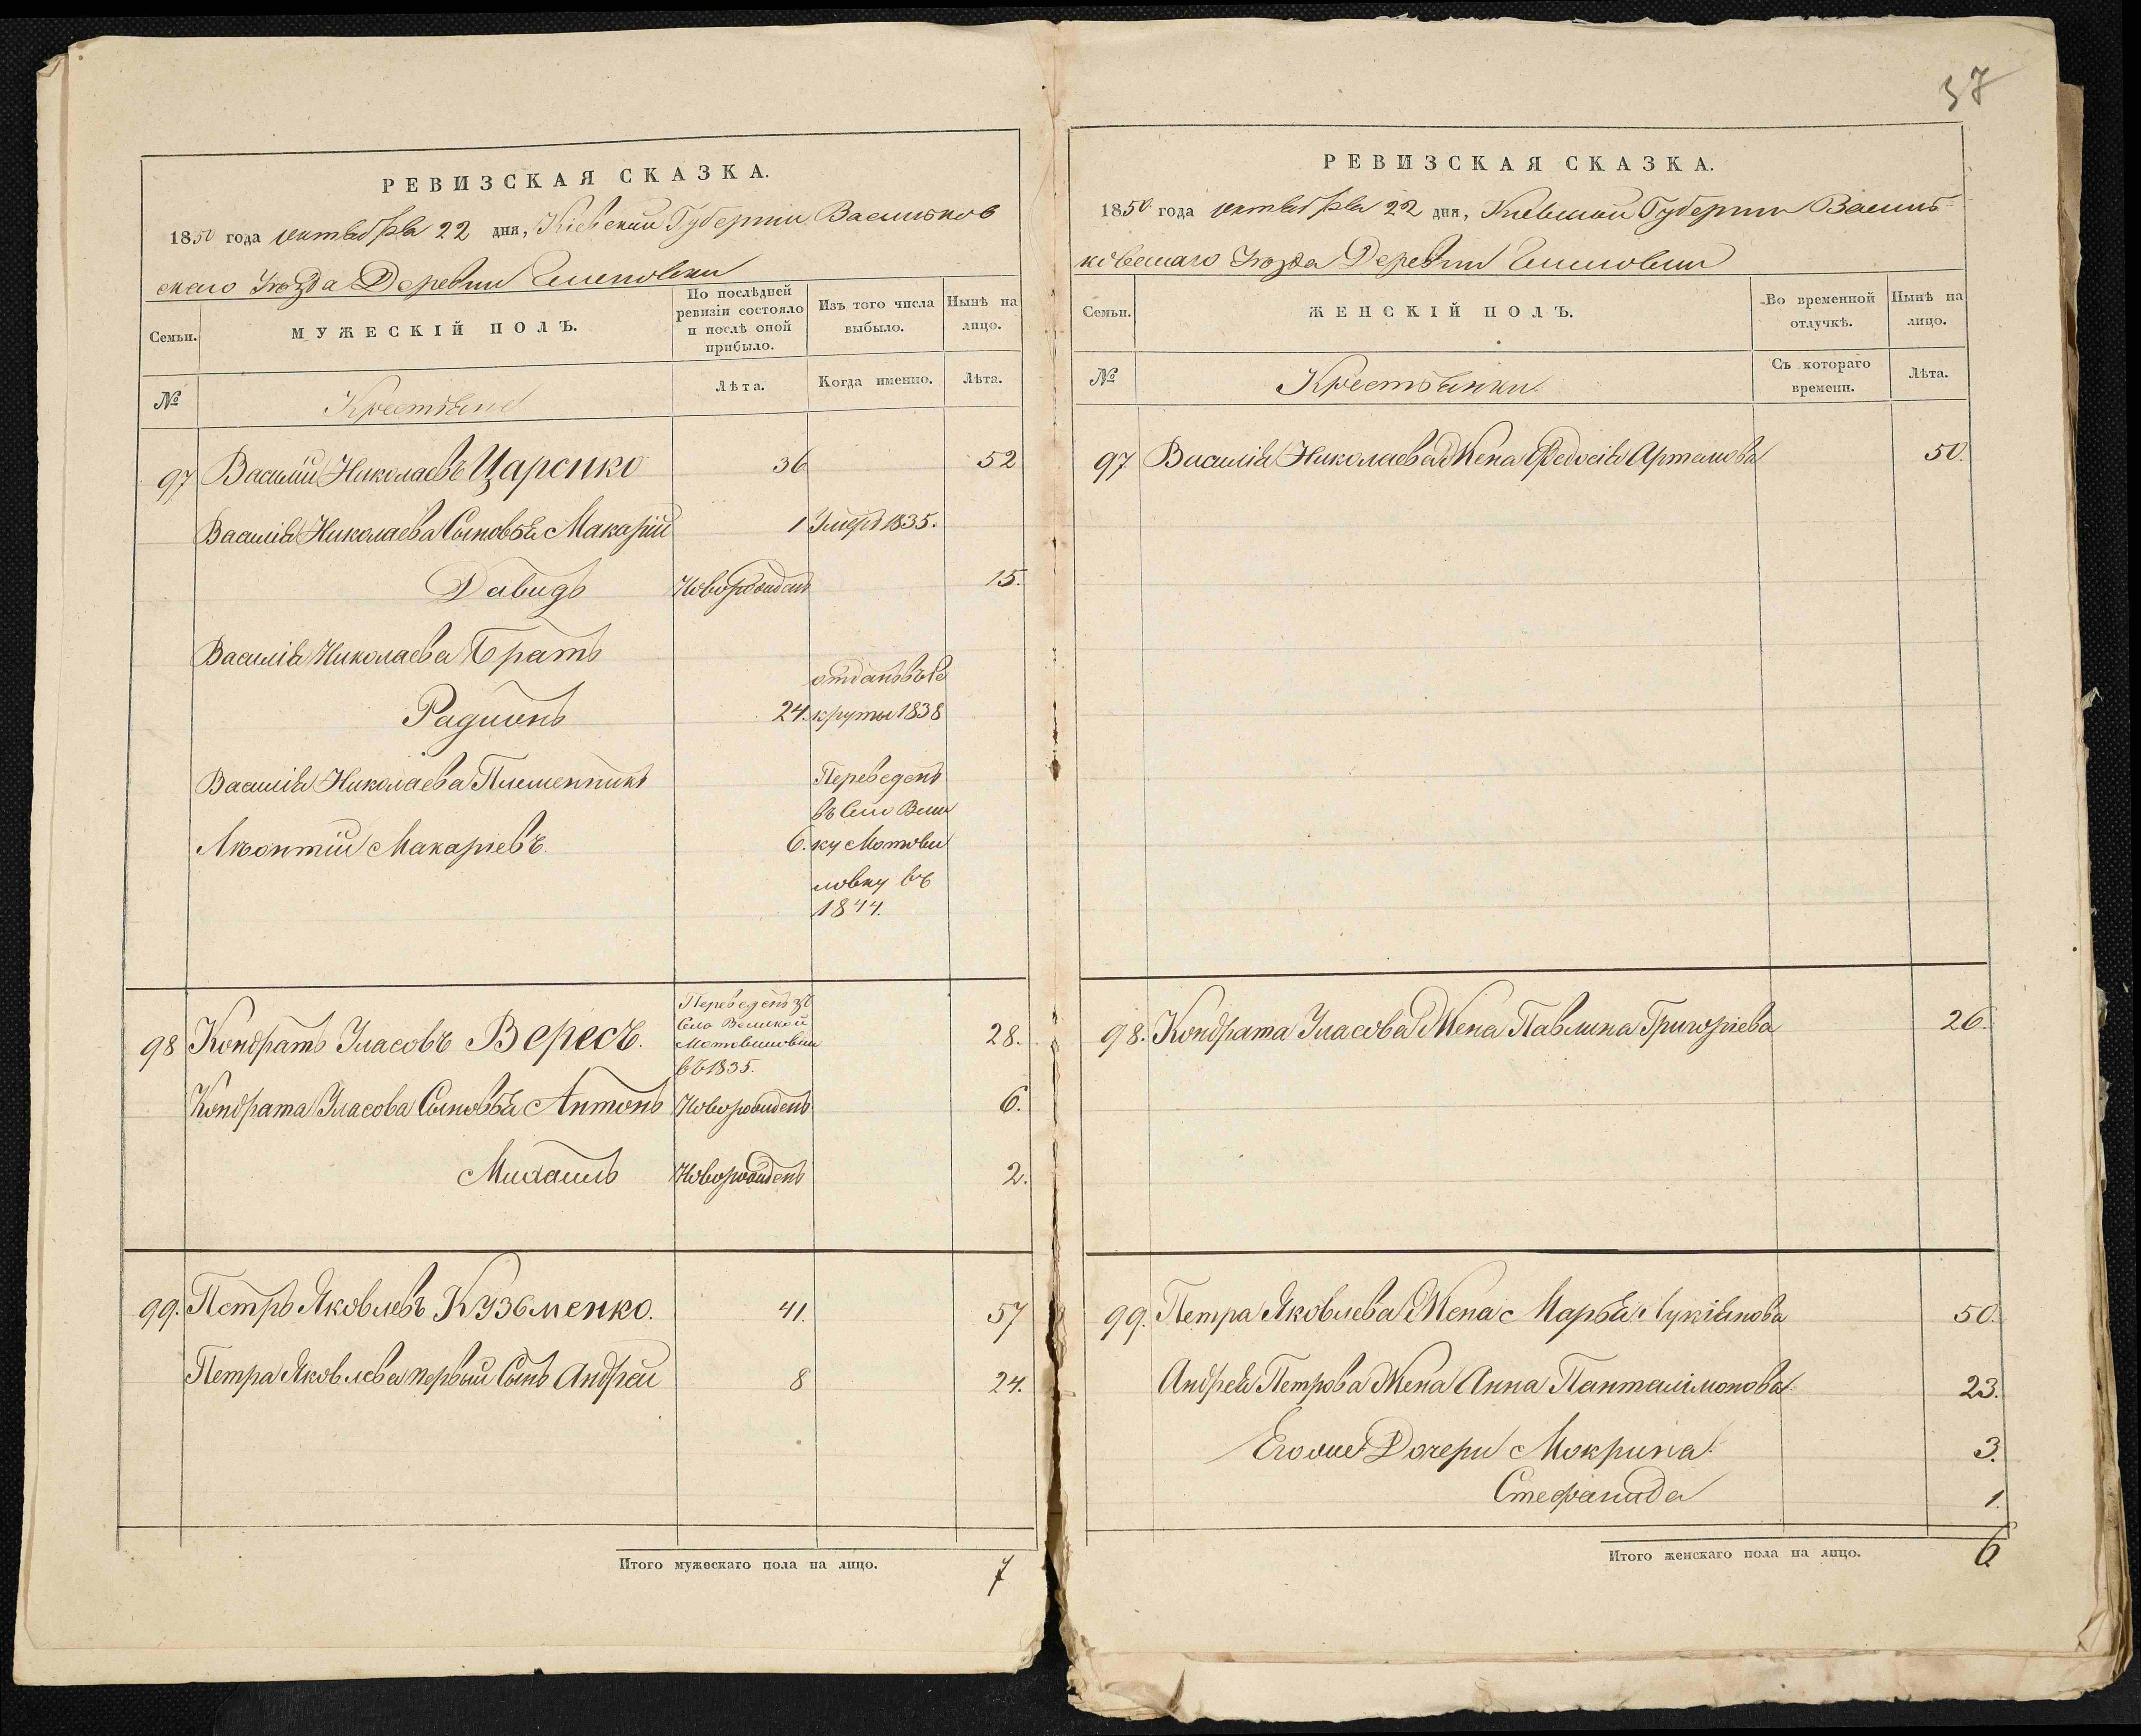 37
РЕВИЗСКАЯ СКАЗКА.
1850 года октября 22 дня, Кіевской Губерніи Васильков
скаго Уезда Деревни
Семьи.
МУЖЕСКІЙ ПОЛЪ.
По послѣдней
ревизіи состояло
и послѣ оной
прибыло.
Изъ того числа
выбыло.
Нынѣ на
лицо.
№
Крестьяне
Лѣта.
Когда именно.
Лѣта.
97 Василій Николаевъ Царенко 36 52
Василія Николаева Сыновья Макарій 1 Умеръ 1835.
Давидъ Новорожденъ 15.
Василія Николаева Братъ
отданъ въ Ре
Радионъ 24. круты 1838
Василія Николаева Племенникъ Переведенъ
въ Село Вели
Леонтій Макаріевъ 6. ку Мотови
ловку въ
1844.
Переведенъ зъ
Села Великой
98 Кондратъ Уласовъ Вересъ. Мотовиловки 28.
въ 1835.
Кондрата Уласова Сыновья Антонъ Новорожденъ 6.
Михаилъ Новорожденъ 2.
99. Петръ Яковлевъ Кузьменко. 41. 57
Петра Яковлева первый Сынъ Андрей 8 24.
Итого мужескаго пола на лицо. 7
РЕВИЗСКАЯ СКАЗКА.
1850 года октября 22 дня, Киевской Губернии Василь
ковскаго Уезда Деревни
Семьи.
ЖЕНСКІЙ ПОЛЪ.
Во временной
отлучкѣ.
Нынѣ на
лицо.
№
Крестьянки.
Съ котораго
времени.
Лѣта.
97 Василія Николаева Жена Федосія Артемова 50.
98. Кондрата Уласова Жена Павлина Григоріева 26.
99. Петра Яковлева Жена Марья Лукіянова 50.
Андрея Петрова Жена Анна Панталимонова 23.
Его же Дочери Мокрина 3.
Стефанида 1.
Итого женскаго пола на лицо. 6